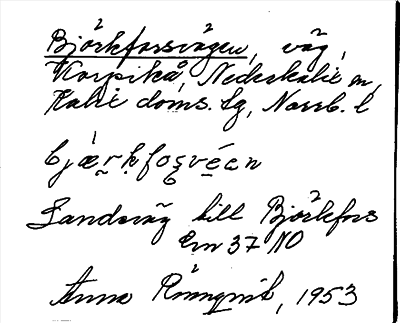 Björkforsvägen, väg,
Korpikå, Nederkalix sn,
Kalix doms. lg, Norrb. l
bjærkfosvéan
Landsväg till Björkfors
Em 37 NO
Anna Rönnqvist, 1953